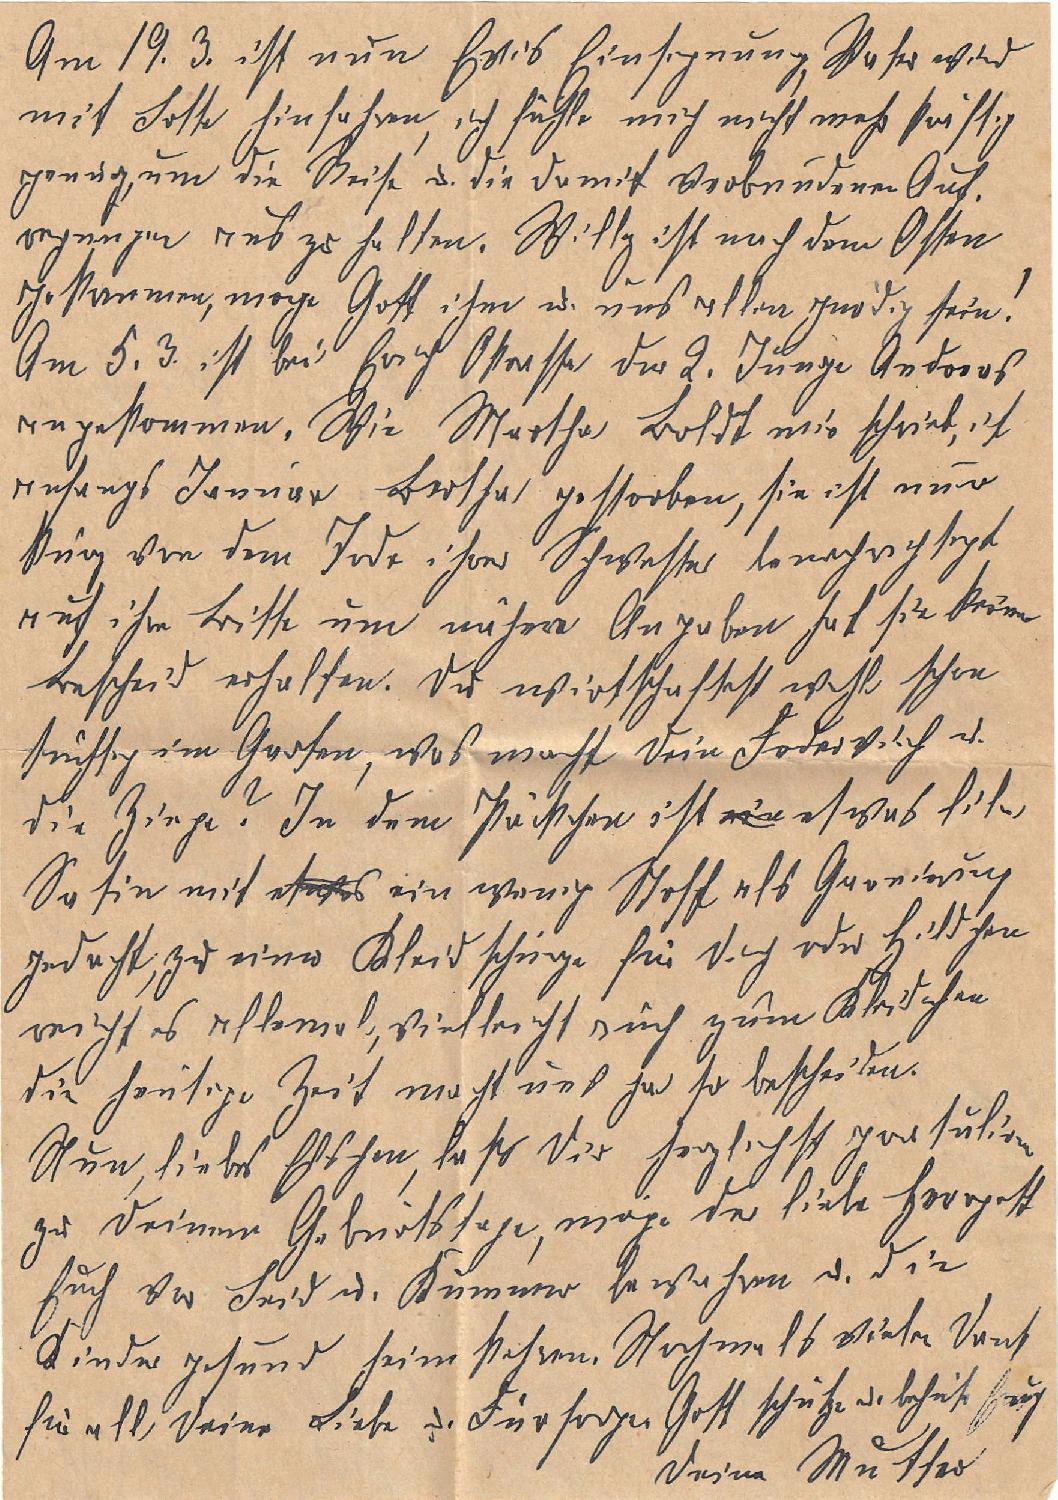 Am 19. 3. ist nun Evis Einsegnung, Vater wird
mit Lotte hinfahren, ich fühle mich nicht mehr kräftig
genug, um die Reise u. die damit verbundenen Auf-
regungen aus zu halten. Willy ist nach dem Osten
gekommen, möge Gott ihm u. uns allen gnädig sein!
Am 5. 3. ist bei Erich der 2. Junge Andreas
angekommen. Wie Martha Boldt mir schrieb, ist
anfangs Januar Bertha gestorben, sie ist nur
kurz von dem Tode ihrer Schwester benachrichtigt
auf ihre Bitte um nähere Angaben hat sie keinen
Bescheid erhalten. Du wirtschaftest wohl schon
tüchtig im Garten, was macht Dein Federvieh u.
die Ziege? In dem Päckchen ist etwas lila
Satin mit ein wenig Stoff als Garnierung
gedacht, zu einer Kleidschürze für Dich oder Hildchen
reicht es allemal, vielleicht auch zum Kleidchen
die heutige Zeit macht uns ja so bescheiden.
Nun, liebes Elschen, laß Dir herzlichst gratulieren
zu Deinem Geburtstage, möge der liebe Herrgott
Euch vor Leid u. Kummer bewahren u. die
Kinder gesund heim kehren. Nochmals vielen Dank
für all Deine Liebe u. Fürsorge. Gott schütze u. behüte Euch
Deine Mutter